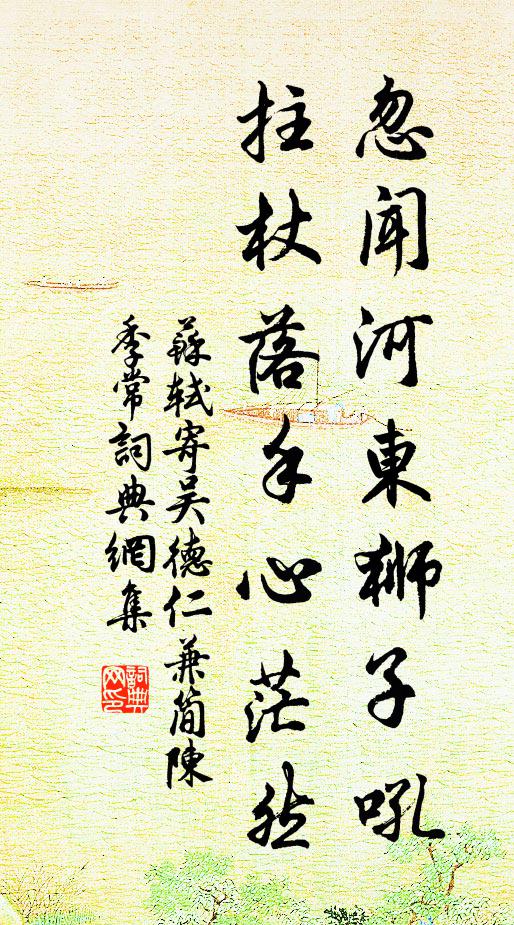 忽聞河東獅子吼
拄杖落手心茫然
蘇軾寄吳德仁兼簡陳
季常詞典網集
詞典
网印